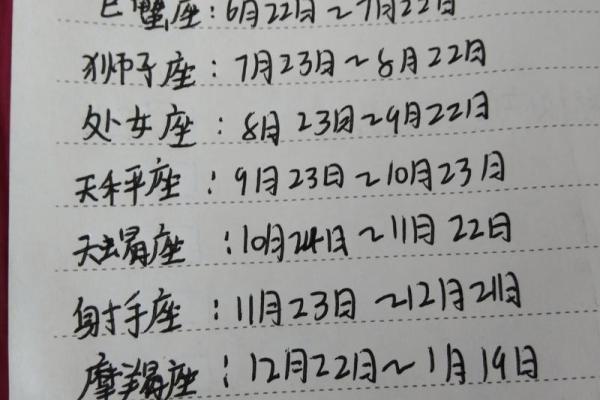 巨蟹座:6月22日~7月22日
狮子座:7月23日~8月22日
处女座:8月23日~9月22日
天秤座:9月23日~10月23日
天蝎座:10月24日~11月22日
射手座:11月23日~12月21日
摩羯座:12月22日~1月19日